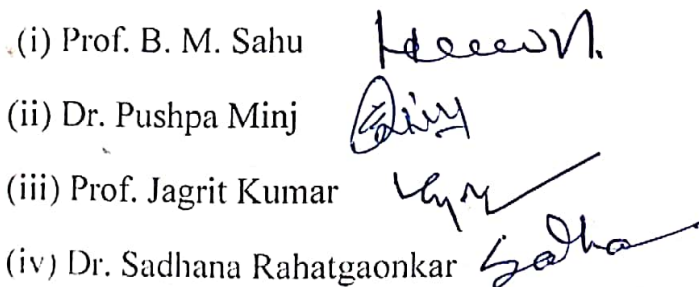 (i) Prof. B. M. Sahu
(ii) Dr. Pushpa Minj
(iii) Prof. Jagrit Kumar
(iv) Dr. Sadhana Rahatgaonkar